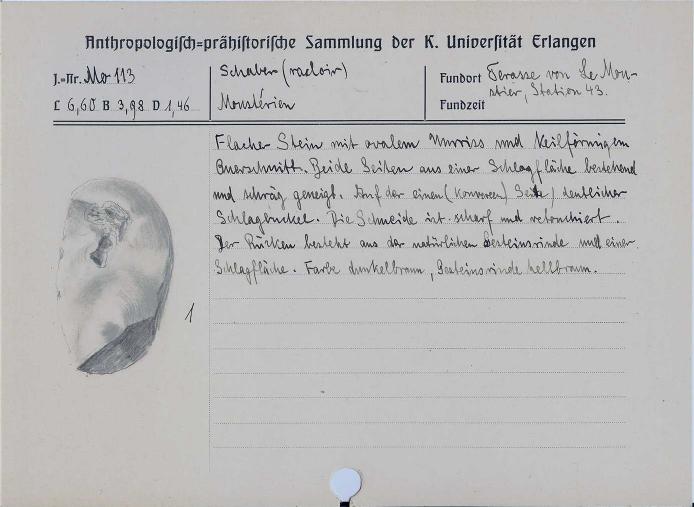 Anthropologisch=prähistorische Sammlung der K. Universität Erlangen
J.=Nr. Mo 113
L 6,60 B 3,98 D 1,46
Schaber (racloir)
Moustérien
Fundort Terasse von Le Mou-
stier, Station 43.
Fundzeit
Flacher Stein mit ovalem Umriss und keilförmigem
Querschnitt. Beide Seiten aus einer Schlagfläche bestehend
und schräg geneigt. Auf der einen (konvexen) Seite deutlicher
Schlagbuckel. Die Schneide ist scharf und retouchiert.
Der Rücken besteht aus der natürlichen Gesteinsrinde und einer
Schlagfläche. Farbe dunkelbraun, Gesteinsrinde hellbraun.
1